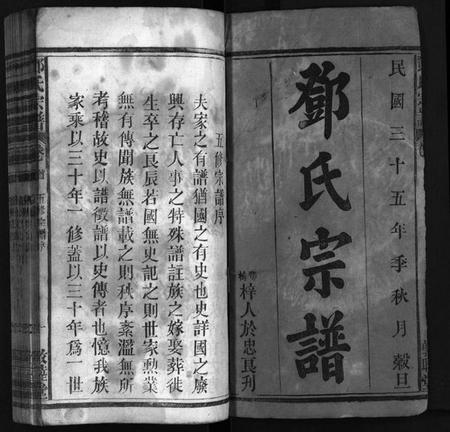 民國三十五年季秋月穀旦
鄧氏宗譜
梓人於忠良刊
五修宗譜序
夫家之有譜猶國之有史也史詳國之廢
興存亡人事之特殊譜註族之嫁娶葬徙
生卒之良辰若國無史記之則世家勲業
無有傳聞族無譜載之則秩序紊濫無所
考稽故史以譜徵譜以史傳者也憶我族
家乘以三十年一修蓋以三十年為一世
鄧氏宗譜